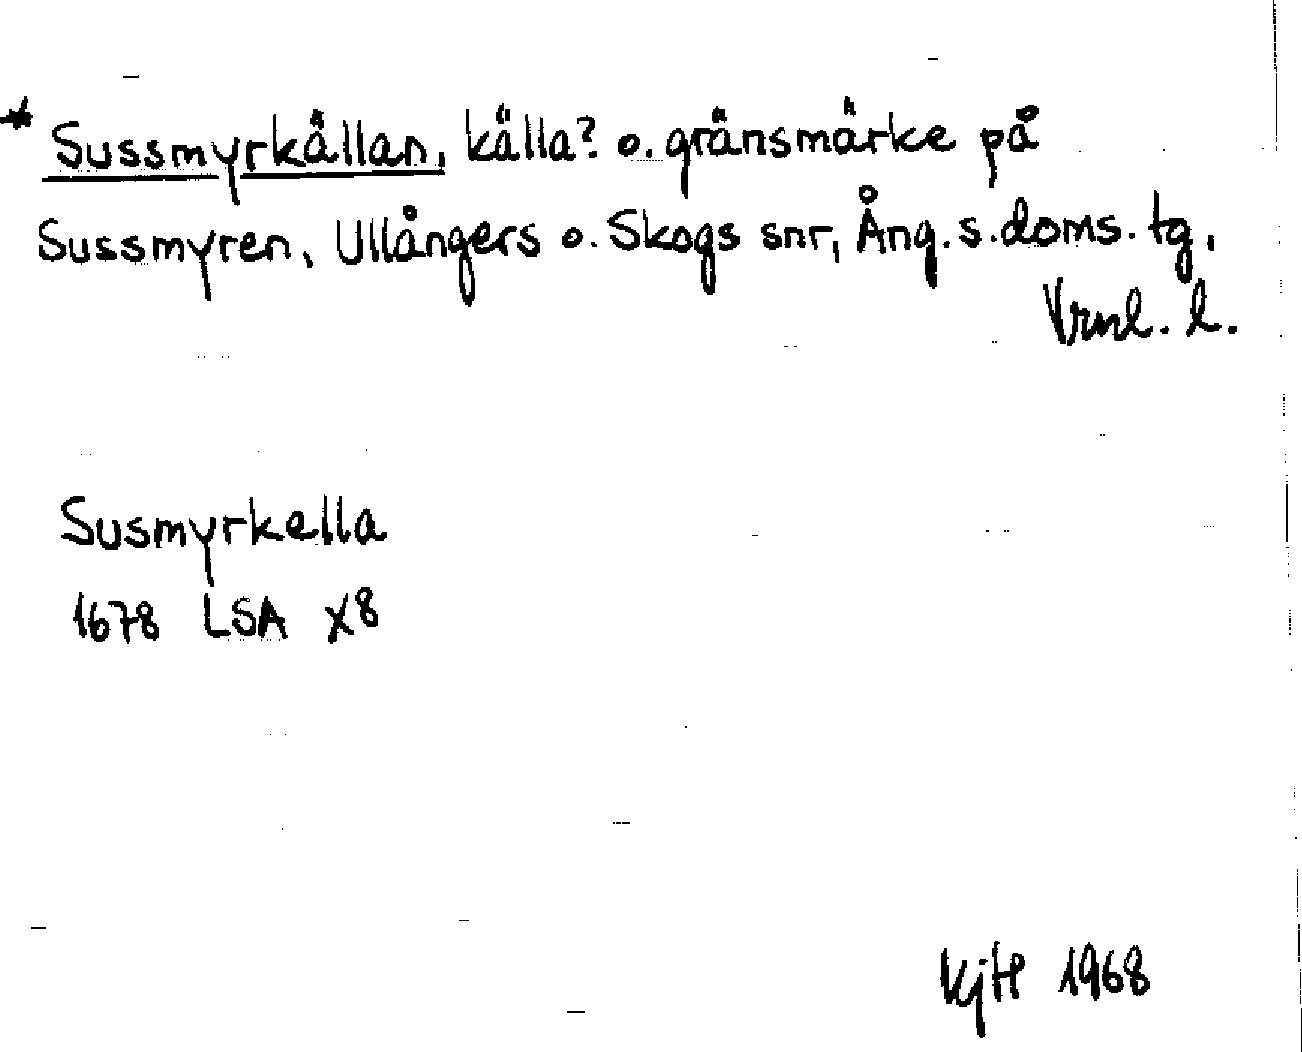 * Sussmyrkällan, källa? o. gränsmärke på
Sussmyren, Ullångers o. Skogs snr, Ång. s. doms. tg,
Vrnl. l.
Susmyrkella
1678 LSA X8
1968